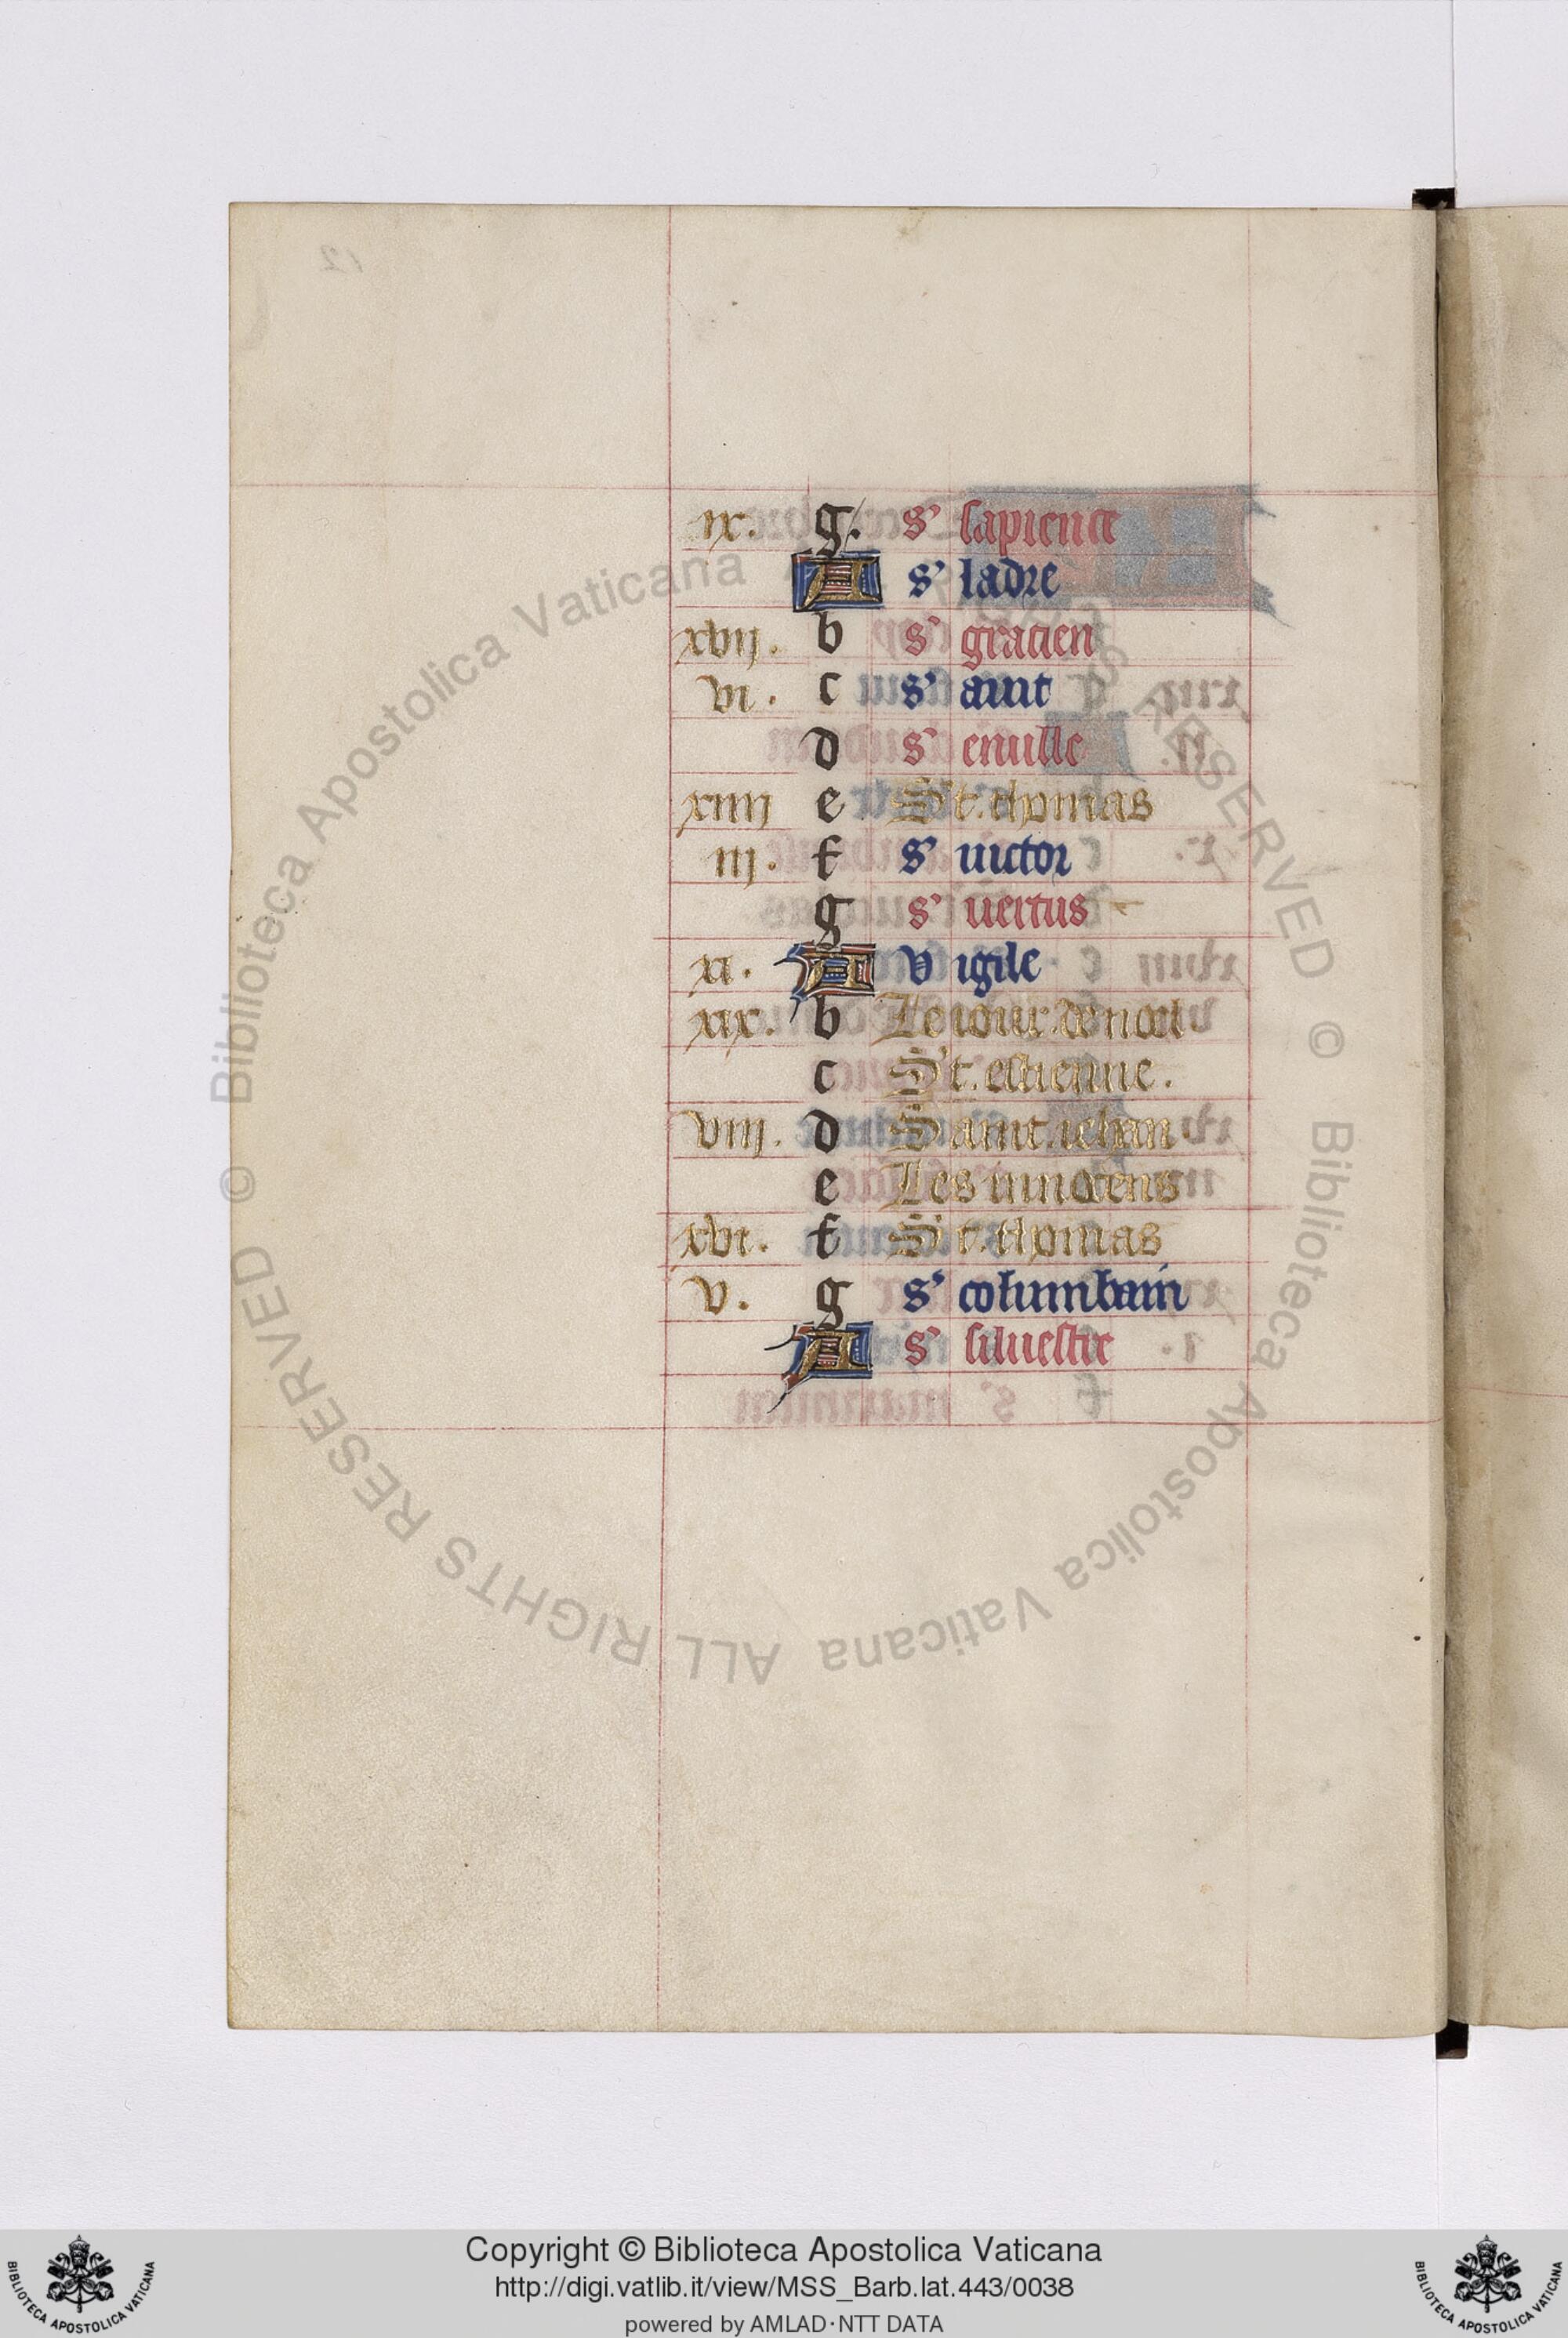 12
ix. g. s' sapience
A s' ladre
xvij. b s' gracien
vi. c s' auit
d s' emille
xiiij e St. thomas
iij. f s' victor
g s' vertus
xi. A Vigile
xix. b Le iour de noel
c St. estienne.
viij. d Saint iehan
e Les innocens
xvi. f St. thomas
v. g s' columbain
A s' siluestre
© Biblioteca Apostolica Vaticana ALL RIGHTS RESERVED © Biblioteca Apostolica Vaticana ALL RIGHTS RESERVED
Copyright © Biblioteca Apostolica Vaticana
http://digi.vatlib.it/view/MSS_Barb.lat.443/0038
powered by AMLAD·NTT DATA
BIBLIOTECA APOSTOLICA VATICANA
BIBLIOTECA APOSTOLICA VATICANA